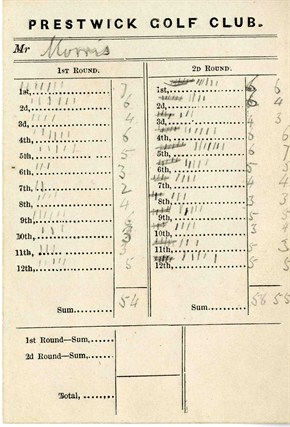 PRESTWICK GOLF CLUB.
Mr Morris
1ST ROUND. 2D ROUND.
1st, 7 1st, 6 6
2d, 6 2d, 4
3d, 4 3d, 4 3
4th, 6 4th, 6 6
5th, 5 5th, 6 7
6th, 3 6th, 3 3
7th, 2 7th, 4 4
8th, 4 8th, 3 3
9th, 5 9th, 5 5
10th, 3 10th, 3 4
11th, 3 11th, 3
12th, 5 12th, 5 5
Sum 54 Sum 58 55
1st Round—Sum,
2d Round—Sum,
Total,